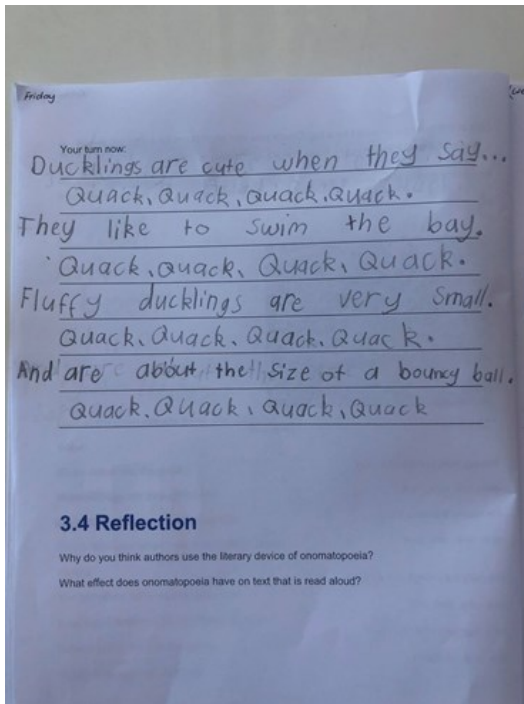 Friday
Your turn now:
Ducklings are cute when they say...
Quack, Quack, Quack. Quack.
They like to swim the bay.
Quack, quack, Quack, Quack.
Fluffy ducklings are very small.
Quack. Quack. Quack. Quack.
And are about the size of a bouncy ball.
Quack. Quack, Quack, Quack
3.4 Reflection
Why do you think authors use the literary device of onomatopoeia?
What effect does onomatopoeia have on text that is read aloud?